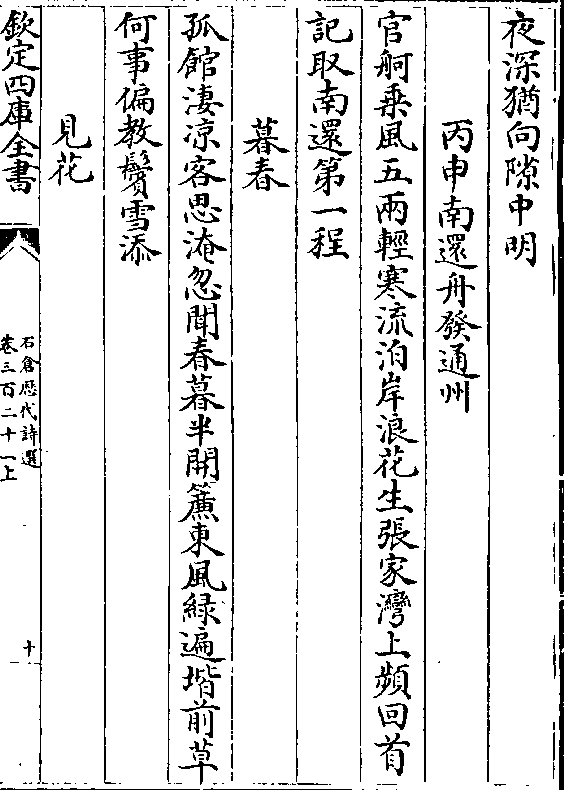 夜深猶向隙中明
丙申南還舟發通州
官舸乗風五兩輕寒流泊岸浪花生張家灣上頻回首
記取南還第一程
暮春
孤館淒凉客思淹忽聞春暮半開簾東風緑遍堦前草
何事偏教鬢雪添
見花
欽定四庫全書
石倉歴代詩選
卷三百二十一上
十